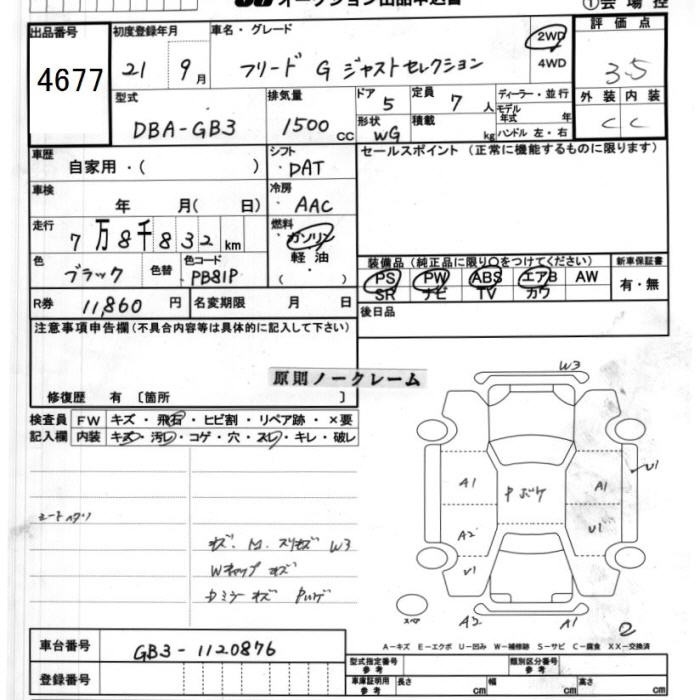 オークション出品申込書 ①会場控
出品番号 初度登録年月 車名・グレード 評価点
4677 21 9月 フリード G ジャストセレクション 2WD 4WD 3.5
型式 排気量 ドア 5 定員 7人 ディーラー・並行 外装 内装
DBA-GB3 1500cc 形状 WG 積載 kg モデル年式 年 ハンドル 左・右 C C
車歴 自家用・( ) シフト ・DAT セールスポイント (正常に機能するものに限ります)
車検 年 月( 日) 冷房 ・AAC
走行 7万8千832km 燃料 ・ガソリン 軽油 ・( )
色 ブラック 色替 色コード PB81P
装備品(純正品に限り○をつけてください) 新車保証書
PS PW ABS エアB AW 有・無
SR ナビ TV カワ
R券 11,860円 名変期限 月 日 後日品
注意事項申告欄(不具合内容等は具体的に記入して下さい)
原則ノークレーム
修復歴 有 〔箇所 〕
検査員 FW キズ・飛石・ヒビ割・リペア跡・×要
記入欄 内装 キズ・汚レ・コゲ・穴・スレ・キレ・破レ
W3
U1
A1 A1
A2 U1
U1
スペア A2 A1 2
シートヘタリ
W3
Wキャップ キズ
車台番号 GB3-1120876
A-キズ E-エクボ U-凹み W-補修跡 S-サビ C-腐食 XX-交換済
登録番号 型式指定番号 参考 類別区分番号 参考
車庫証明用 参考 長さ cm 幅 cm 高さ cm